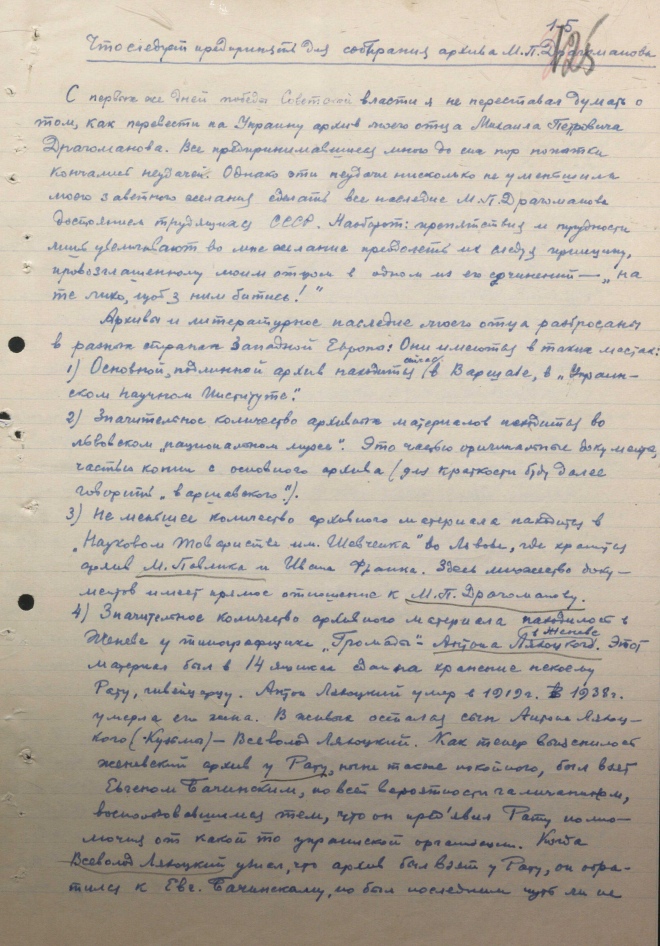 15
126
Что следует предпринять для собирания архива М.П.Драгоманова
С первых же дней победы Советской власти я не переставал думать о
том, как перевести на Украину архив моего отца Михаила Петровича
Драгоманова. Все предпринимавшиеся мною до сих пор попытки
кончались неудачей. Однако эти неудачи нисколько не уменьшили
моего заветного желания сделать все наследие М.П.Драгоманова
достоянием трудящихся СССР. Наоборот: препятствия и трудности
лишь увеличивают во мне желание преодолеть их следуя принципу,
провозглашенному моим отцом в одном из его сочинений — „на
те лихо, щоб з ним битись!"
Архивы и литературное наследие моего отца разбросаны
в разных странах Западной Европы: Они имеются в таких местах:
1) Основной, подлинный архив находится (в Варшаве, в „Украин-
ском Научном Институте".
2) Значительное количество архивных материалов находится во
львовском „национальном музее". Это частью оригинальные документы,
частью копии с основного архива (для краткости буду далее
говорить „варшавского").
3) Не меньшее количество архивного материала находится в
„Науковом Товаристве им. Шевченка" во Львове, где хранятся
архив М. Павлика и Ивана Франка. Здесь множество доку-
ментов имеет прямое отношение к М.П.Драгоманову.
4) Значительное количество архивного материала находилось в
Женеве у типографщика „Громады" – Антона Ляхоцкого в Женеве. Этот
материал был в 14 ящиках сдан на хранение некоему
Рату, швейцарцу. Антон Ляхоцкий умер в 1919г. В 1938г.
умерла его жена. В живых остался сын Антона Ляхоц-
кого (Кузьмы) – Всеволод Ляхоцкий. Как теперь выяснилось
женевский архив у Рату, ныне также покойного, был взят
Евгеном Бачинским, по всей вероятности галичанином,
воспользовавшимся тем, что он пред'явил Рату полно-
мочия от какой то украинской организации. Когда
Всеволод Ляхоцкий узнал, что архив был взят у Рату, он обра-
тился к Евг. Бачинскому, но был последним чуть ли не